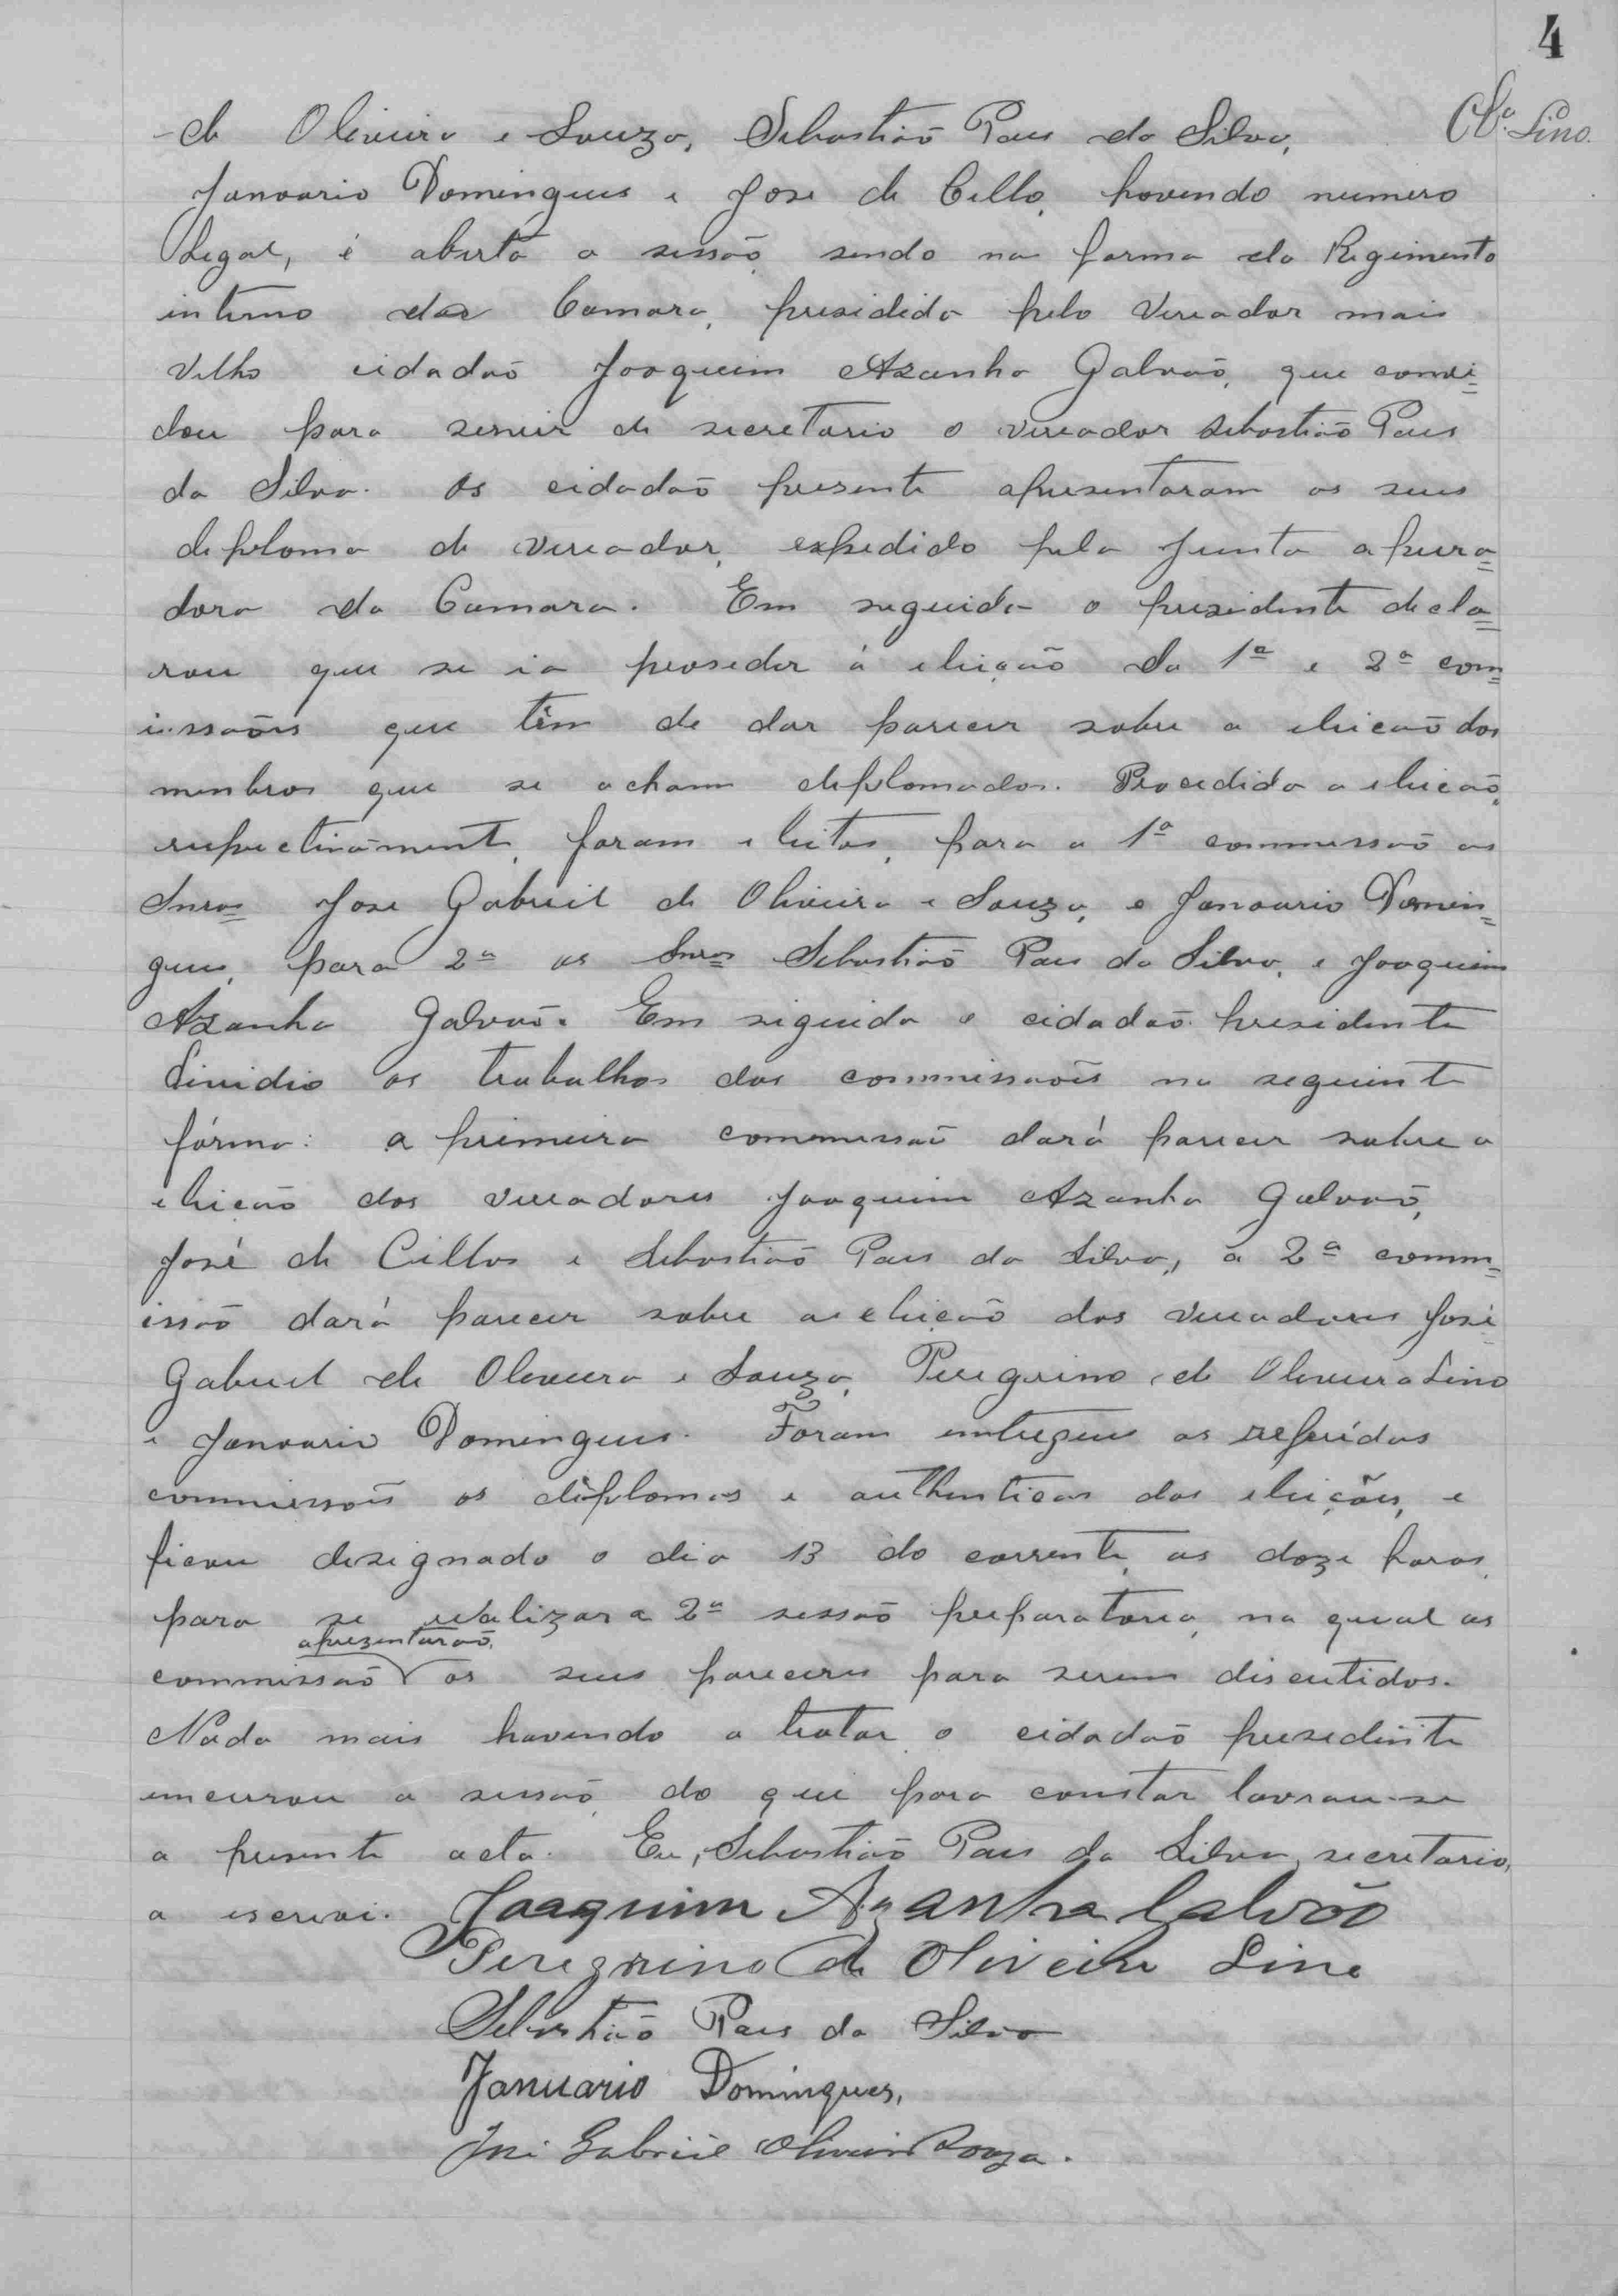 4
Ol.ª Lino.
de Oliveira e Souza, Sebastião Paes da Silva,
Januario Domingues e José de Cillo, havendo numero
legal, é aberta a sessão, sendo na forma do Regimento
interno da Camara, presidida pelo Vereador mais
velho cidadão Joaquim Azanha Galvão, que convi=
dou para servir de secretario o vereador Sebastião Paes
da Silva. Os cidadão presente apresentaram os seus
deploma de vereador, expedido pela Junta apura=
dora da Camara. Em seguida o presidente decla=
rou que se ia proseder á eleição da 1ª e 2ª com=
issões que têm de dar parecer sobre a eleicão dos
menbros que se acham deplomados. Procedida a eleicão,
respectivamente, foram eleitos, para a 1ª commissão os
Snros José Gabriel de Oliveira e Souza, e Januario Domin=
gues, para 2ª os Snros Sebastião Paes da Silva, e Joaquim
Azanha Galvão. Em siguida o cidadão presidente
dividio os trabalhos das commissões na seguinte
fórma: a primeira commissão dará parecer sobre a
eleicão dos vereadores Joaquim Azanha Galvão,
José de Cillos e Sebastião Paes da Silva, a 2ª comm=
issão dará parecer sobre a eleicão dos vereadores José
Gabriel de Oliveira e Souza, Peregrino de Oliveira Lino
e Januario Domingues. Foram entregues as referidas
commissões os diplomas e authenticas das eleições, e
ficou designado o dia 13 do corrente, as doze horas,
para se realizar a 2ª sessão preparatoria, na qual as
commissão aprezentarão, os seus pareceres para serem discutidos.
Nada mais havendo a tratar o cidadão presidente
encerrou a sessão, do que para constar lavrou-se
a presente acta. Eu, Sebastião Paes da Silva, secretario,
a escrevi. Joaquim Azanha Galvão
Peregrino de Oliveira Lino
Sebastião Paes da Silva
Januario Domingues.
José Gabriel Oliveira Souza.